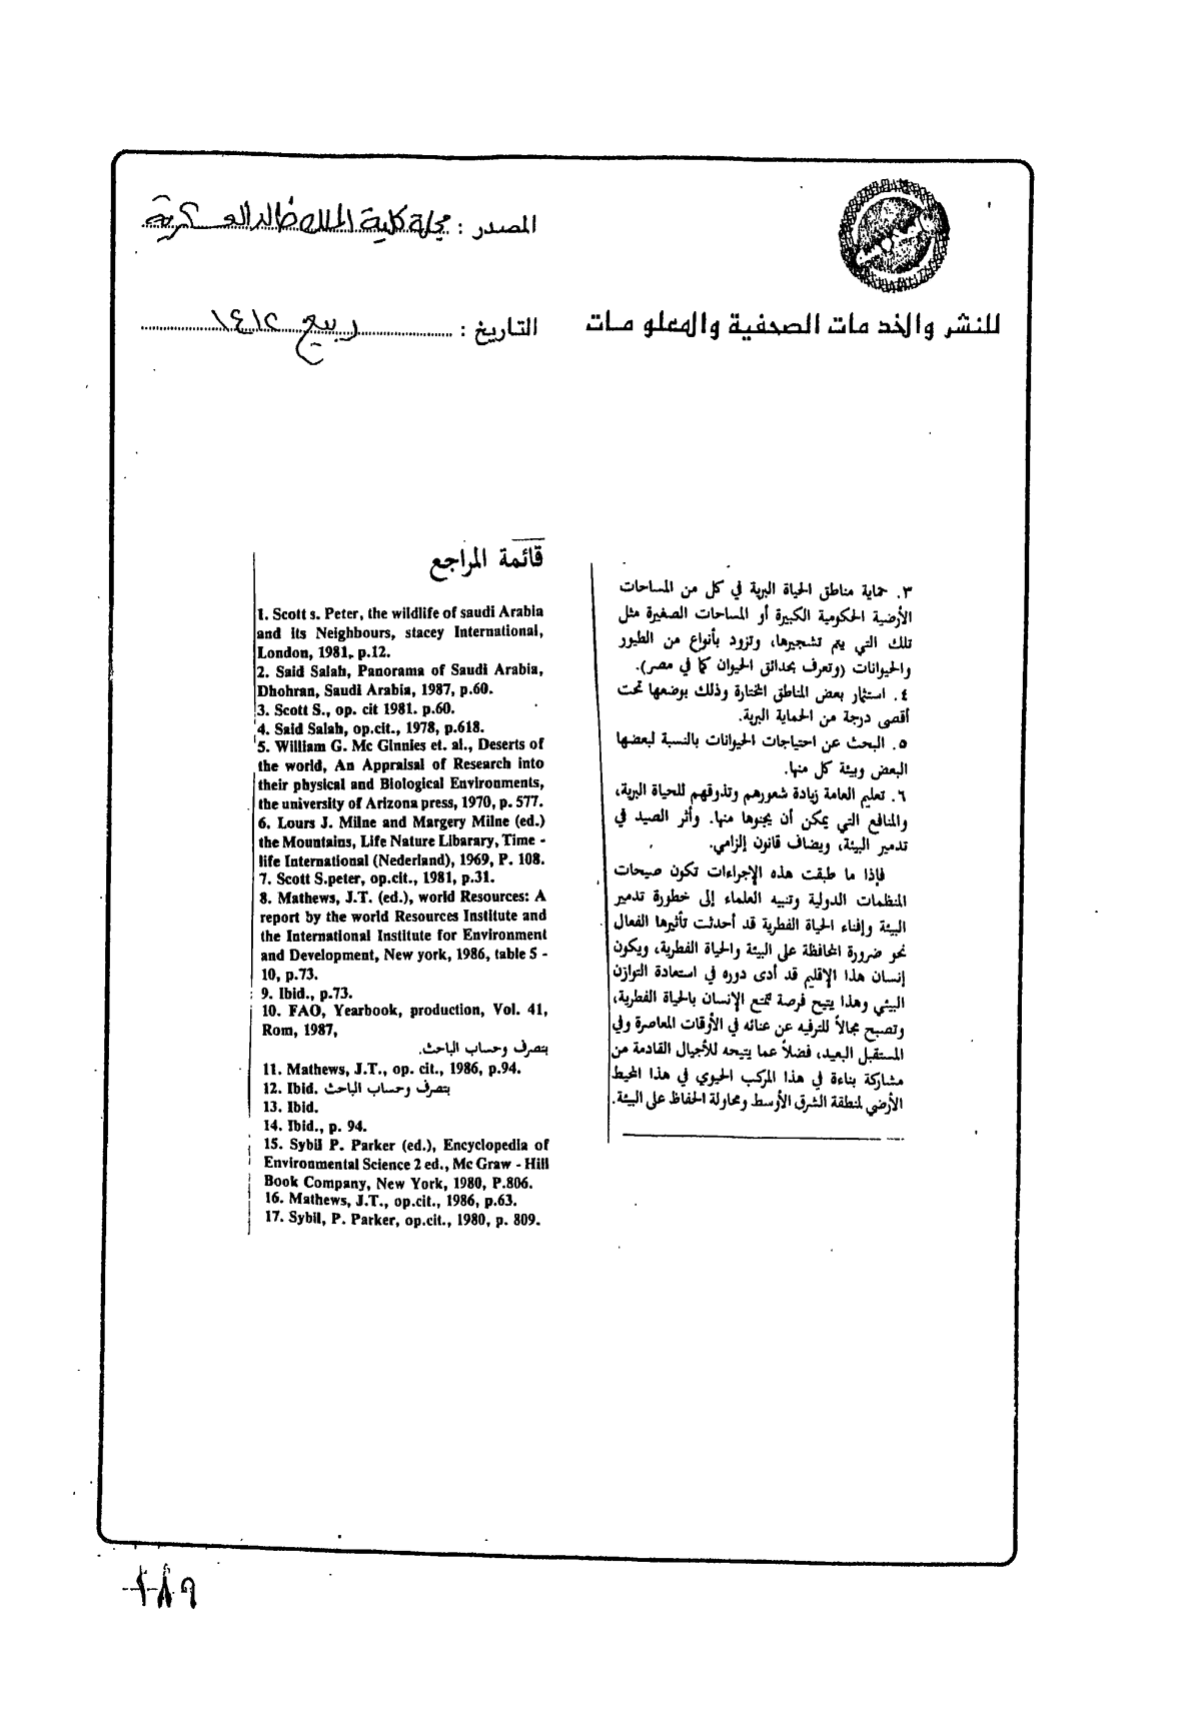 المصدر : مجلة كلية الملك خالد العسكرية
للنشر والخدمات الصحفية والمعلومات
التاريخ : ربيع ١٤١٢
٣. حماية مناطق الحياة البرية في كل من المساحات
الأرضية الحكومية الكبيرة أو المساحات الصغيرة مثل
تلك التي يتم تشجيرها، وتزود بأنواع من الطيور
والحيوانات (وتعرف بحدائق الحيوان كما في مصر).
٤. استثمار بعض المناطق المختارة وذلك بوضعها تحت
أقصى درجة من الحماية البرية.
٥. البحث عن احتياجات الحيوانات بالنسبة لبعضها
البعض وبيئة كل منها.
٦. تعليم العامة زيادة شعورهم وتذوقهم للحياة البرية،
والمنافع التي يمكن أن يجنوها منها. وأثر الصيد في
تدمير البيئة، ويضاف قانون إلزامي.
فإذا ما طبقت هذه الإجراءات تكون صيحات
المنظمات الدولية وتنبيه العلماء إلى خطورة تدمير
البيئة وإفناء الحياة الفطرية قد أحدثت تأثيرها الفعال
نحو ضرورة المحافظة على البيئة والحياة الفطرية، ويكون
إنسان هذا الإقليم قد أدى دوره في استعادة التوازن
البيئي وهذا يتيح فرصة تمتع الإنسان بالحياة الفطرية،
وتصبح مجالاً للترفيه عن عنائه في الأوقات المعاصرة وفي
المستقبل البعيد، فضلاً عما يتيحه للأجيال القادمة من
مشاركة بناءة في هذا المركب الحيوي في هذا المحيط
الأرضي لمنطقة الشرق الأوسط ومحاولة الحفاظ على البيئة.
قائمة المراجع
1. Scott s. Peter, the wildlife of saudi Arabia
and its Neighbours, stacey International,
London, 1981, p.12.
2. Said Salah, Panorama of Saudi Arabia,
Dhohran, Saudi Arabia, 1987, p.60.
3. Scott S., op. cit 1981. p.60.
4. Said Salah, op.cit., 1978, p.618.
5. William G. Mc Ginnies et. al., Deserts of
the world, An Appraisal of Research into
their physical and Biological Environments,
the university of Arizona press, 1970, p. 577.
6. Lours J. Milne and Margery Milne (ed.)
the Mountains, Life Nature Libarary, Time -
life International (Nederland), 1969, P. 108.
7. Scott S.peter, op.cit., 1981, p.31.
8. Mathews, J.T. (ed.), world Resources: A
report by the world Resources Institute and
the International Institute for Environment
and Development, New york, 1986, table 5 -
10, p.73.
9. Ibid., p.73.
10. FAO, Yearbook, production, Vol. 41,
Rom, 1987,
بتصرف وحساب الباحث.
11. Mathews, J.T., op. cit., 1986, p.94.
12. Ibid. بتصرف وحساب الباحث
13. Ibid.
14. Ibid., p. 94.
15. Sybil P. Parker (ed.), Encyclopedia of
Environmental Science 2 ed., Mc Graw - Hill
Book Company, New York, 1980, P.806.
16. Mathews, J.T., op.cit., 1986, p.63.
17. Sybil, P. Parker, op.cit., 1980, p. 809.